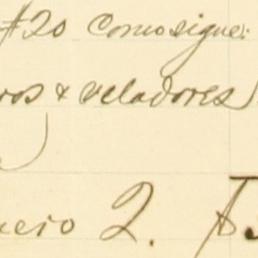 #20 Como sigue:
ros & veladores
nero 2. $